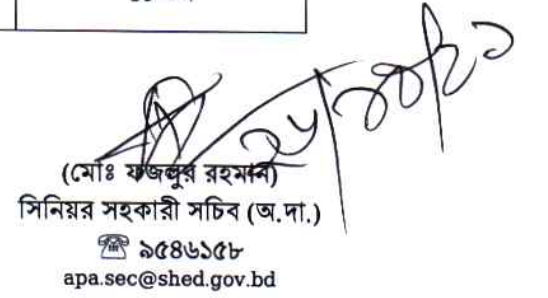 (মোঃ ফজলুর রহমান)
সিনিয়র সহকারী সচিব (অ.দা.)
☎ ৯৫৪৬১৫৮
apa.sec@shed.gov.bd